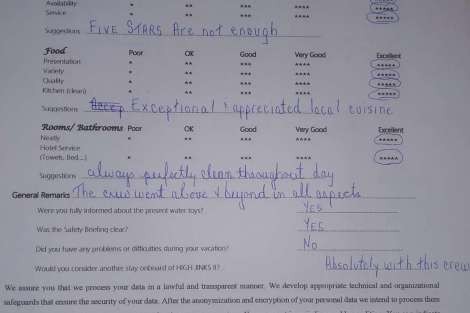 Availability * ** *** **** *****
Service * ** *** **** *****
Suggestions FIVE STARS Are not enough
Food Poor OK Good Very Good Excellent
Presentation * ** *** **** *****
Variety * ** *** **** *****
Quality * ** *** **** *****
Kitchen (clean) * ** *** **** *****
Suggestions Exceptional i appreciated local cuisine
Rooms/ Bathrooms Poor OK Good Very Good Excellent
Neatly * ** *** **** *****
Hotel Service
(Towels, Bed....) * ** *** **** *****
Suggestions always perfectly clean throughout day
General Remarks The crew went above & beyond in all aspects
Were you fully informed about the present water toys? YES
Was the Safety Briefing clear? YES
Did you have any problems or difficulties during your vacation? No
Would you consider another stay onboard of HIGH JINKS II? Absolutely with this crew
We assure you that we process your data in a lawful and transparent manner. We develop appropriate technical and organizational
safeguards that ensure the security of your data. After the anonymization and encryption of your personal data we intend to process them